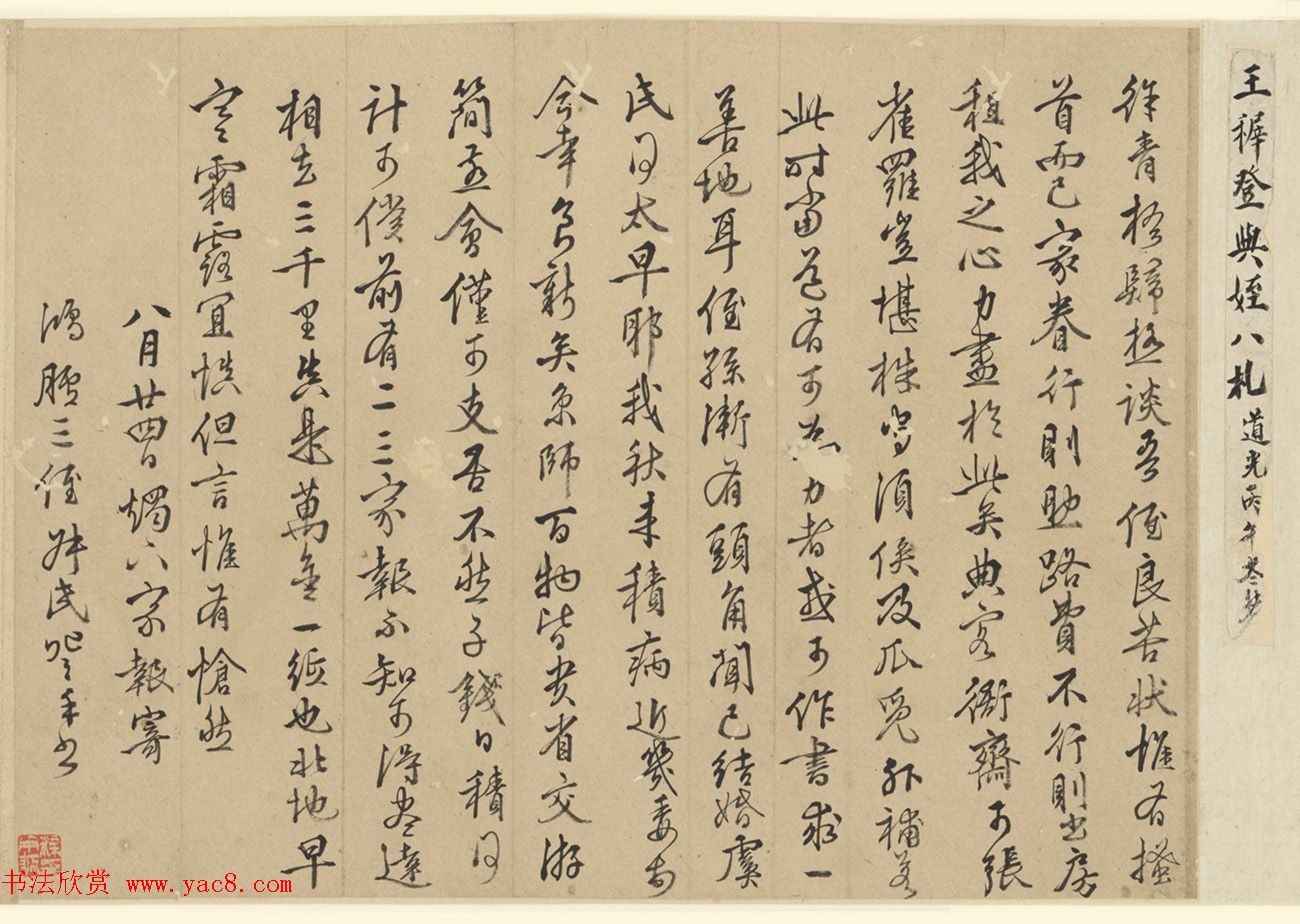 王穉登與姪八札 道光丙午
徐青楊歸極談吾侄良苦狀惟有搔
首而已家眷行則助路費不行則出房
租我之心力盡於此矣典客衙齋可張
雀羅豈堪株守須俟及瓜覓外補若
此時當道有可為力者或可作書求一
善地耳侄孫漸有頭角聞已結婚虞
氏得太早耶我秋來積病近幾委
今幸良新矣京師百物皆貴省交游
簡燕會僅可支吾不然子錢日積何
計可償前有二三家報不知可得盡達
相去三千里真是萬金一紙也北地早
寒霜露宜慎但言惟有愴然
八月廿四日燭下家報寄
鴻臚三侄 叔民 手書
书法欣赏 www.yac8.com